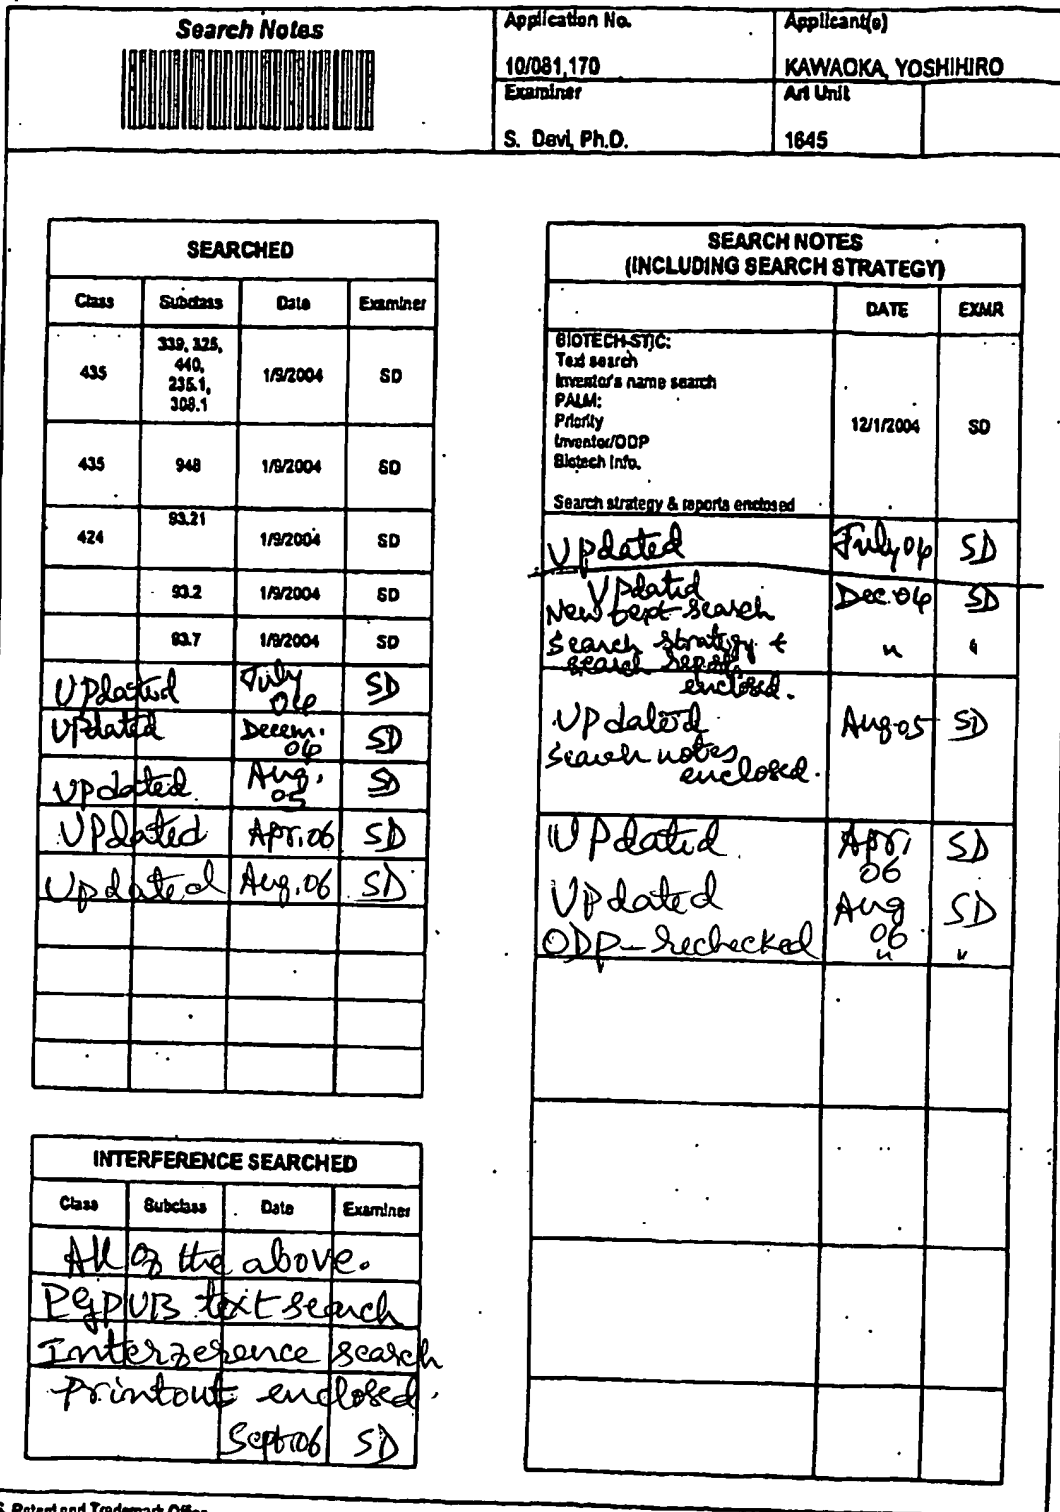 Search Notes
Application No.
10/081,170
Applicant(s)
KAWAOKA, YOSHIHIRO
Examiner
S. Devi, Ph.D.
Art Unit
1645
SEARCHED
Class Subclass Date Examiner
435 339, 325, 440, 235.1, 308.1 1/9/2004 SD
435 948 1/9/2004 SD
424 93.21 1/9/2004 SD
93.2 1/9/2004 SD
93.7 1/9/2004 SD
Updated July 04 SD
Updated Decem. 04 SD
Updated Aug. 05 SD
Updated Apr. 06 SD
Updated Aug. 06 SD
SEARCH NOTES
(INCLUDING SEARCH STRATEGY)
DATE EXMR
BIOTECH-STIC:
Text search
Inventor's name search
PALM:
Priority
Inventor/ODP
Biotech Info.
12/1/2004 SD
Search strategy & reports enclosed
Updated July 04 SD
Updated Dec. 04 SD
New text search
Search strategy & " "
search report
enclosed.
Updated Aug. 05 SD
Search notes
enclosed.
Updated Apr. 06 SD
Updated Aug 06 SD
ODP - rechecked " "
INTERFERENCE SEARCHED
Class Subclass Date Examiner
All of the above.
PGPUB text search
Interference search
Printout enclosed.
Sept. 06 SD
Patent and Trademark Office